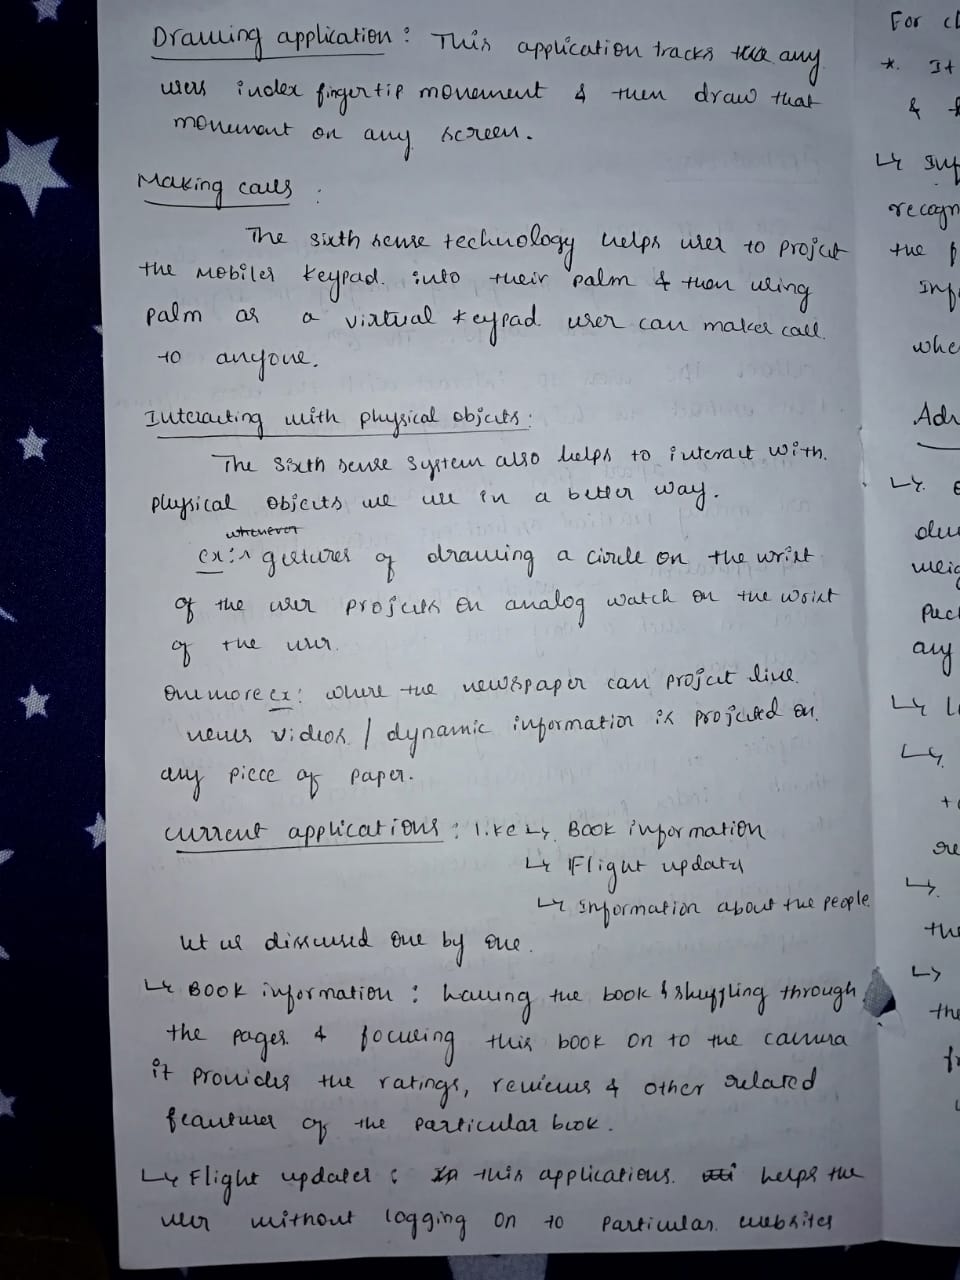 Drawing application : This application tracks the any
users index fingertip movement & then draw that
movement on any screen.
Making calls :
The sixth sense technology helps user to project
the mobiles keypad into their palm & then using
palm as a virtual keypad user can makes call
to anyone.
Interacting with physical objects :
The sixth sense system also helps to interact with
physical objects we use in a better way.
whenever
ex : ^ gestures of drawing a circle on the wrist
of the user projects on analog watch on the wrist
of the user.
One more ex : where the newspaper can project live
news videos / dynamic information is projected on
any piece of paper.
current applications : like ↳ Book information
↳ Flight updates
↳ Information about the people
let us discussed one by one.
↳ Book information : having the book & shuffling through
the pages & focusing this book on to the camera
it provides the ratings, reviews & other related
feautures of the particular book.
↳ Flight updates : In this applications helps the
user without logging on to particular websites
For
* It
&
↳
recogn
the
Inf
whe
Adv
↳
any
↳
↳
↳
the
↳
the